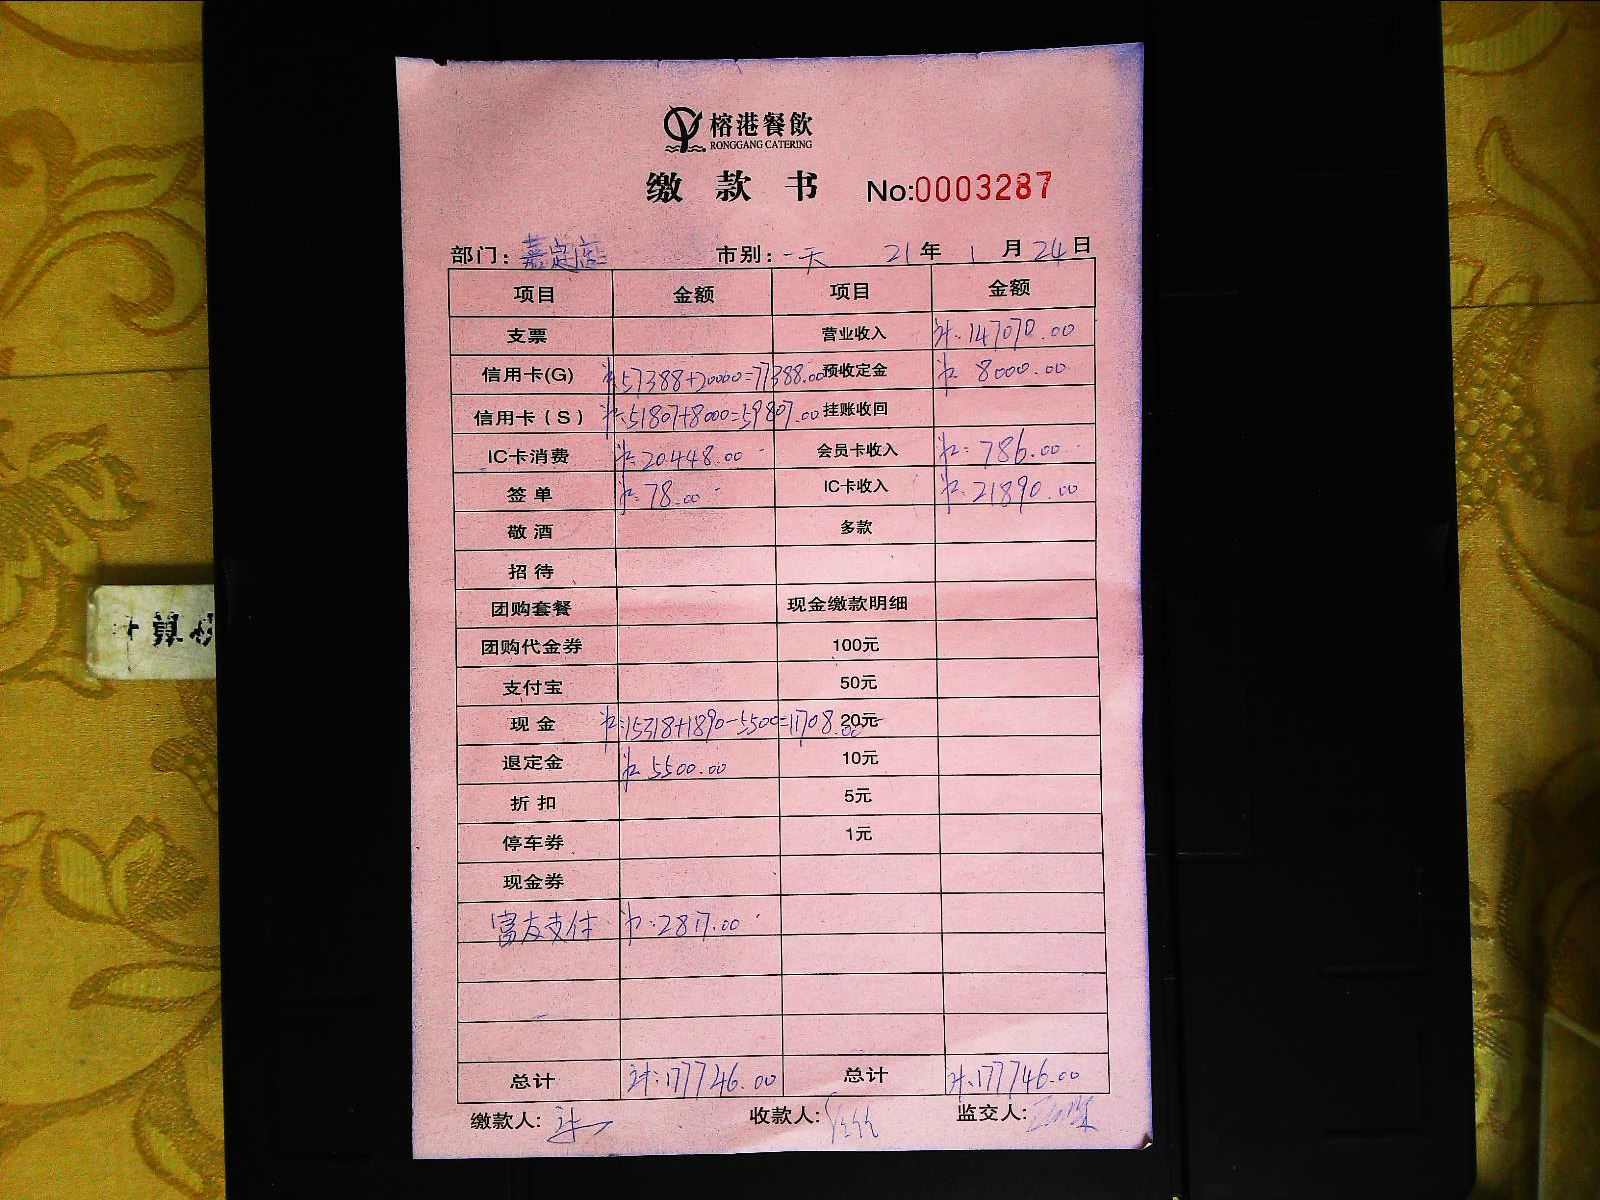 榕港餐飲
RONGGANG CATERING
缴款书 No:0003287
部门：嘉定店 市别：一天 21年1月24日
项目 金额 项目 金额
支票 营业收入 计:147070.00
信用卡(G) 计:57388+20000=77388.00 预收定金 计 8000.00
信用卡（S） 计:51807+8000=59807.00 挂账收回
IC卡消费 计:20448.00 会员卡收入 计:786.00
签单 计:78.00 IC卡收入 计:21890.00
敬酒 多款
招待
团购套餐 现金缴款明细
团购代金券 100元
支付宝 50元
现金 计:15318+1890-5500=11708.00 20元
退定金 计 5500.00 10元
折扣 5元
停车券 1元
现金券
富友支付 计:2817.00
总计 计:177746.00 总计 计:177746.00
缴款人: 收款人: 监交人:
算